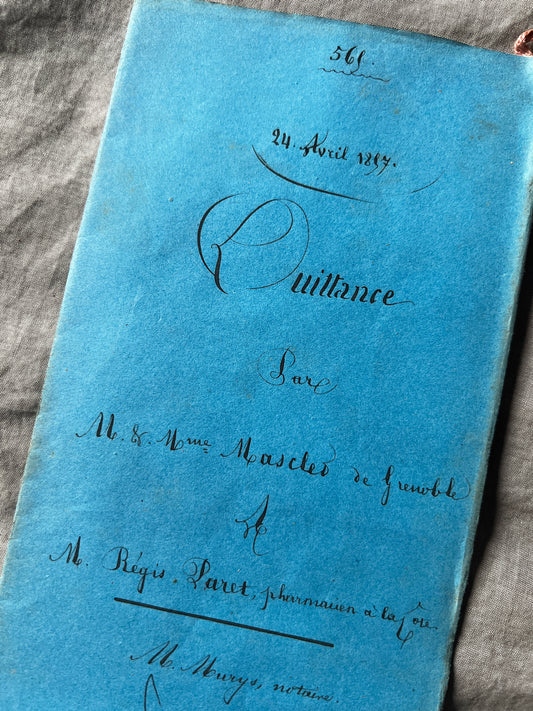 561.
24. Avril 1897.
Quittance
Par
M. & Mme Mascles de Grenoble
A
M. Régis Paret, pharmacien à la Côte
M. Murys, notaire.